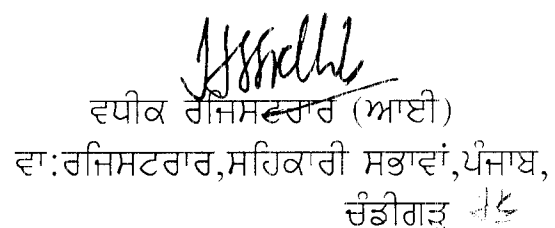 ਵਧੀਕ ਰਜਿਸਟਰਾਰ (ਆਈ)
ਵਾ:ਰਜਿਸਟਰਾਰ,ਸਹਿਕਾਰੀ ਸਭਾਵਾਂ,ਪੰਜਾਬ,
ਚੰਡੀਗੜ